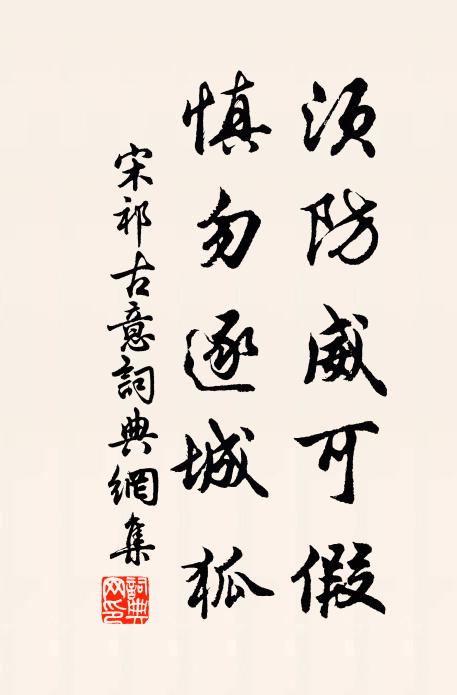 須防威可假
慎勿逐城狐
宋祁古意詞典網集